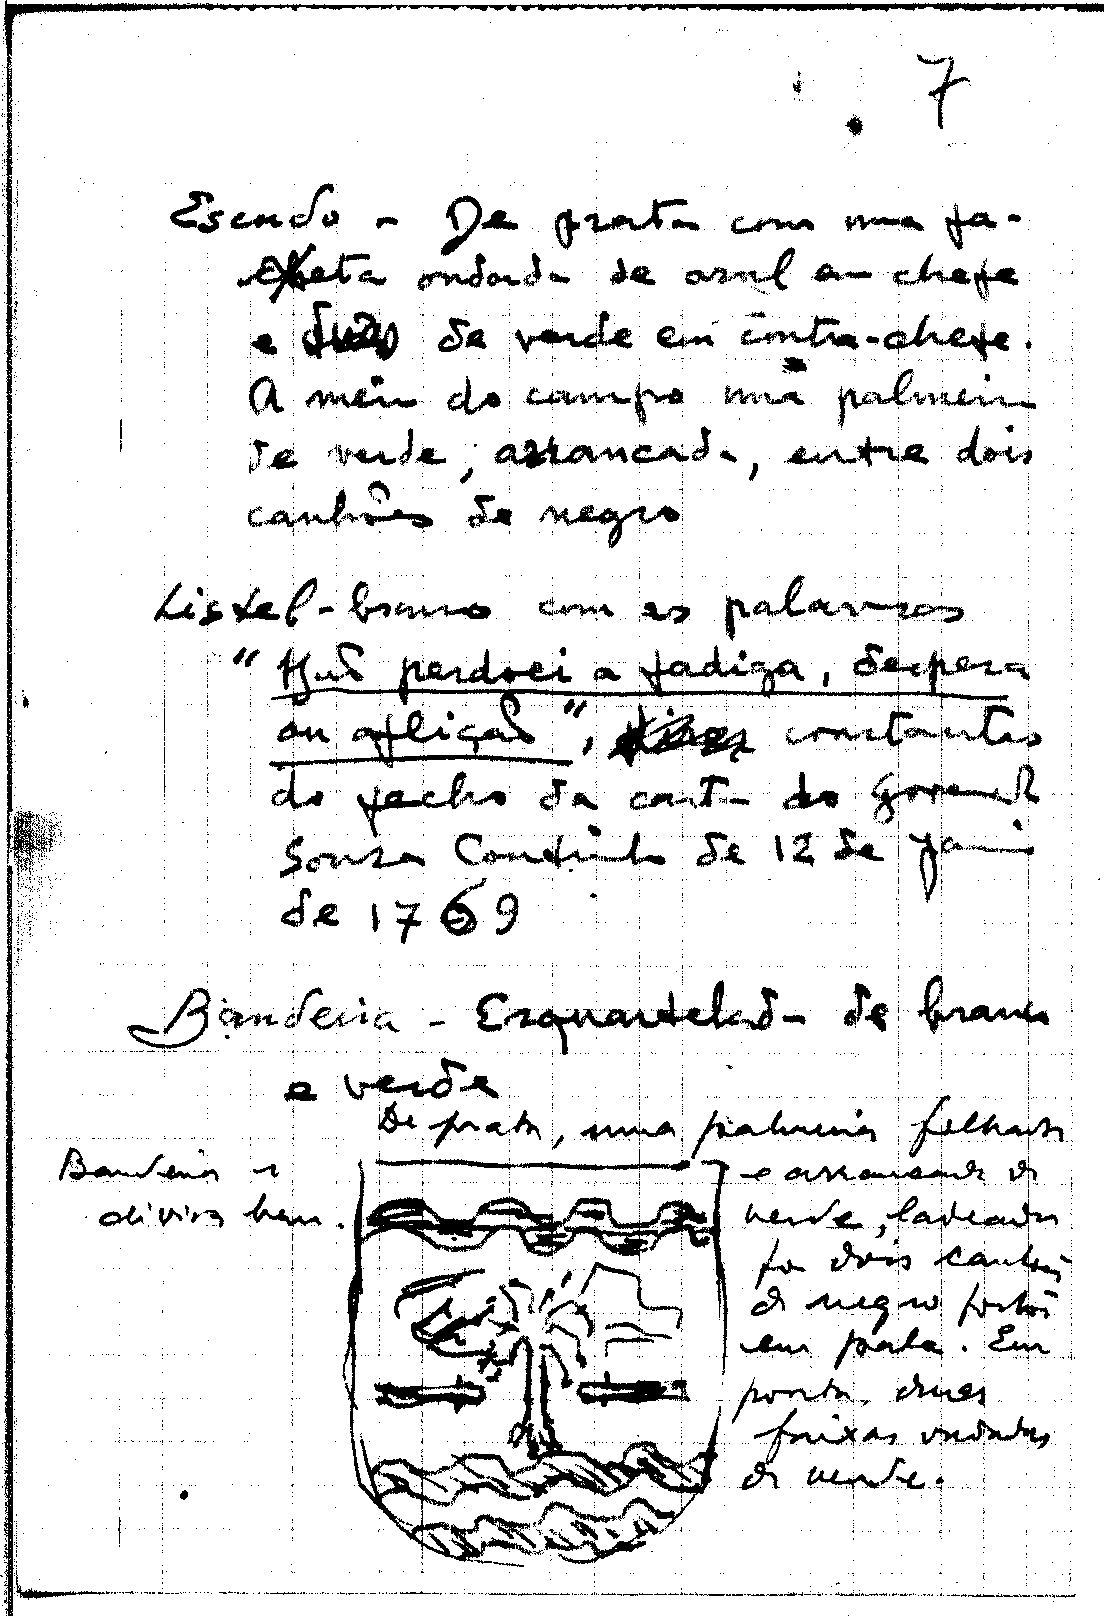 7
Escudo - De prata com uma fa-
xeta ondada de azul em chefe
e duas de verde em contra-chefe.
A meio do campo uma palmeira
de verde, arrancada, entre dois
canhões de negro
Listel - branco com as palavras
" Não perdoei a fadiga, despesa
ou aflição", constantes
do fecho da carta do Governador
Souza Coutinho de 12 de
de 1769
Bandeira - Esquartelada de branco
e verde
De prata, uma palmeira folhada
Bandeira e
divisa bem.
e arrancada de
verde, ladeada
por dois canhões
de negro postos
em pala. Em
ponta, duas
faixas ondadas
de verde.